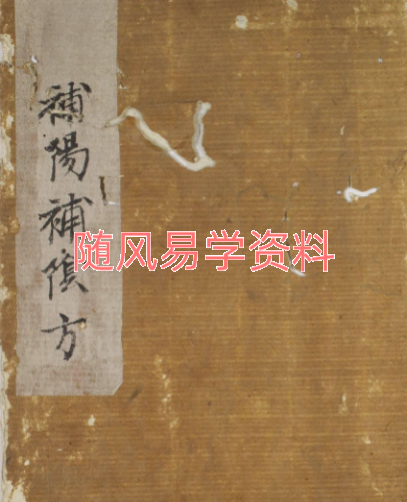 補陽補陰方
随风易学资料